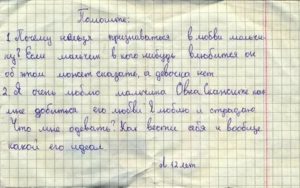 Помогите:
1. Почему нельзя признаваться в любви мальчи-
ку? Если мальчик в кого нибудь влюбится он
об этом может сказать, а девочка нет
2. Я очень люблю мальчика Овна Скажите как
мне добиться его любви Я люблю и страдаю
Что мне одевать? Как вести себя и вообще
какой его идеал
12 лет.